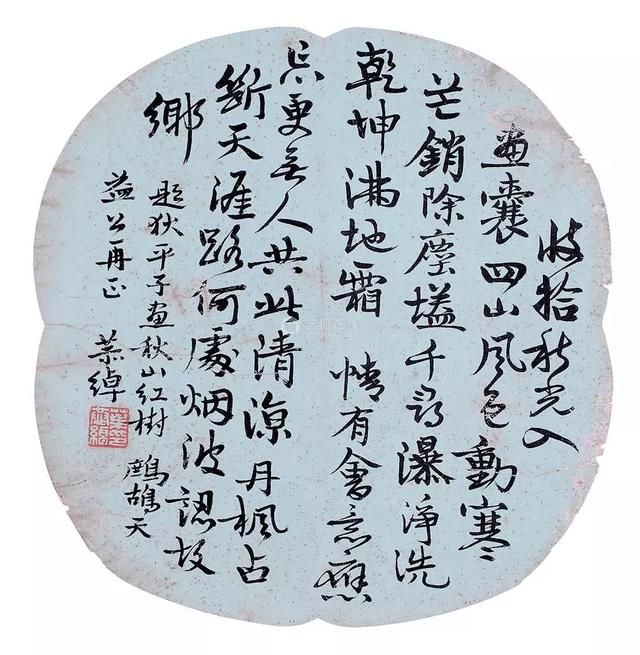 收拾秋光入
畫囊四山風色動寒
芒銷除塵壒千尋瀑淨洗
乾坤滿地霜 情有會意應
忘更無人共此清涼丹楓占
斷天涯路何處烟波認故
鄉
題狄平子畫秋山紅樹 鷓鴣天
益公再正 葉綽